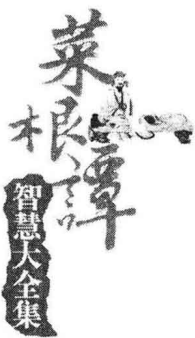 菜根譚
智慧大全集